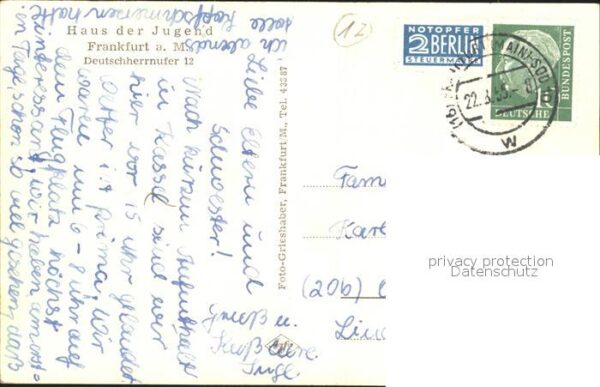 Haus der Jugend
Frankfurt a. M.
Deutschherrnufer 12
Liebe Eltern und
Schwester!
Nach kurzem Aufenthalt
in Kassel sind wir
hier vor 15 Uhr gelandet.
Wetter ist prima, wir
waren um 6-8 Uhr auf
dem Flugplatz, höchst
interessant, wir haben am erst-
en Tage schon so viel gesehen, daß
ich abends
tolle Kopfschmerzen hatte.
Gruß u.
Kuß Eure
Inge
Foto-Grieshaber, Frankfurt M., Tel. 43287
12
NOTOPFER
2 BERLIN
STEUERMARKE
DEUTSCHE
BUNDESPOST
22.
W
Fam
(20b)
privacy protection
Datenschutz